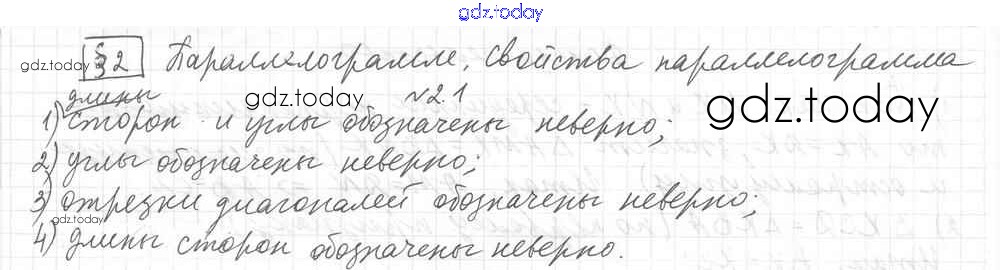 gdz.today
§2 Параллелограмм. Свойства параллелограмма
gdz.today
длины №2.1
gdz.today gdz.today
1) сторон и углы обозначены неверно;
2) углы обозначены неверно;
3) отрезки диагоналей обозначены неверно;
gdz.today
4) длины сторон обозначены неверно.